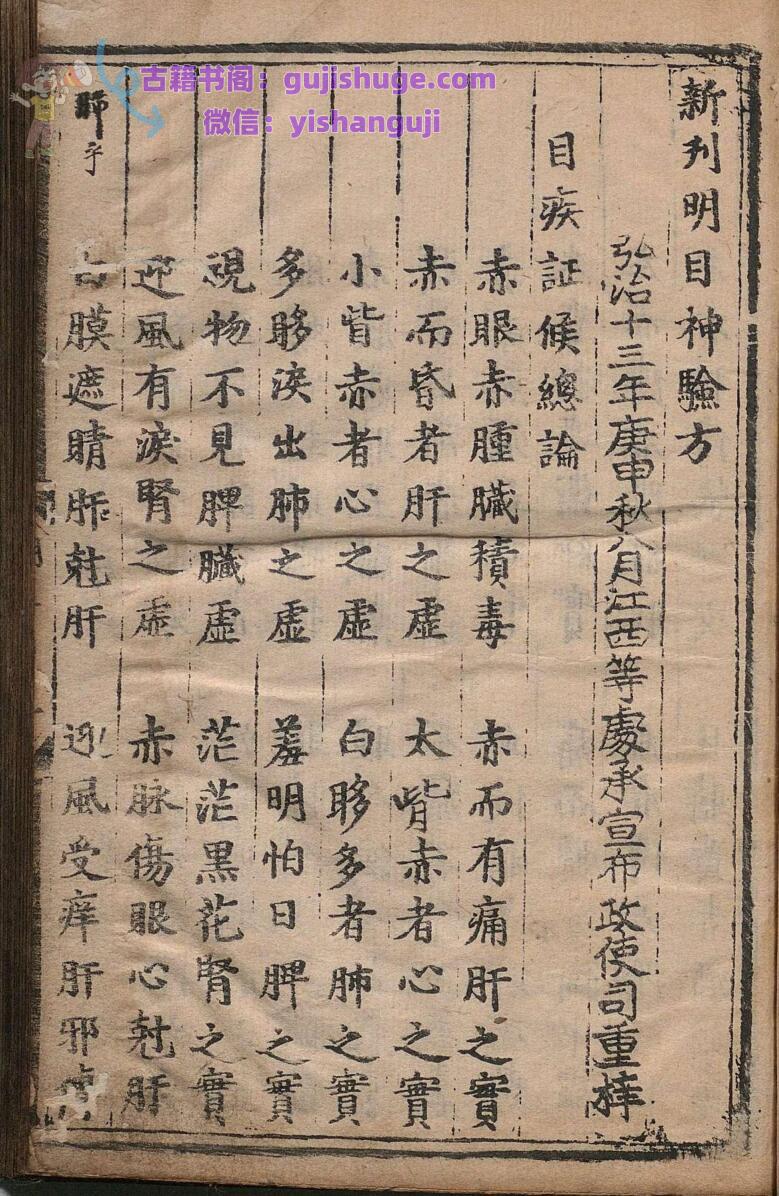 古籍书阁：gujishuge.com
微信：yishanguji
新刋明目神驗方
弘治十三年庚申秋八月江西等處承宣布政使司重梓
目疾証候總論
赤眼赤腫臟積毒 赤而有痛肝之實
赤而昏者肝之虛 太眥赤者心之實
小眥赤者心之虛 白眵多者肺之實
多眵淚出肺之虛 羞明怕日脾之實
視物不見脾臟虛 茫茫黑花腎之實
迎風有淚腎之虛 赤脉傷眼心尅肝
白膜遮睛肺尅肝 迎風受痒肝邪